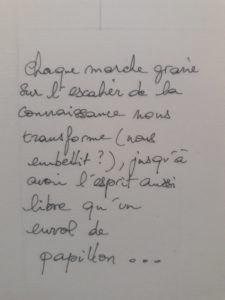 Chaque marche gravie
sur l'escalier de la
connaissance nous
transforme (nous
embellit ?), jusqu'à
avoir l'esprit aussi
libre qu'un
envol de
papillon ...